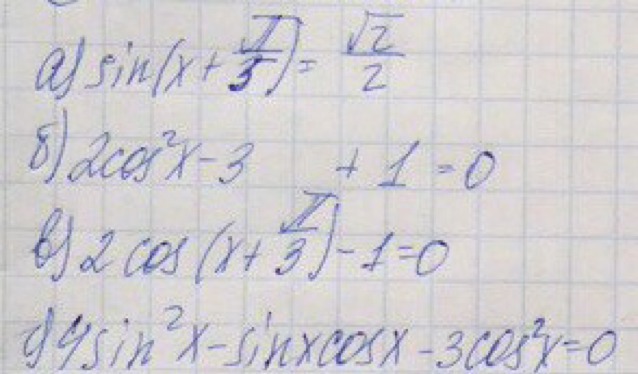 а) sin(x + π/3) = √2/2
б) 2cos²x - 3 + 1 = 0
в) 2 cos (x + π/3) - 1 = 0
г) 4sin²x - sinxcosx - 3cos²x = 0